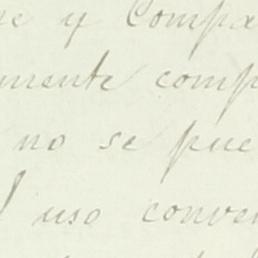 y Comp
mente comp
no se pue
uso conven